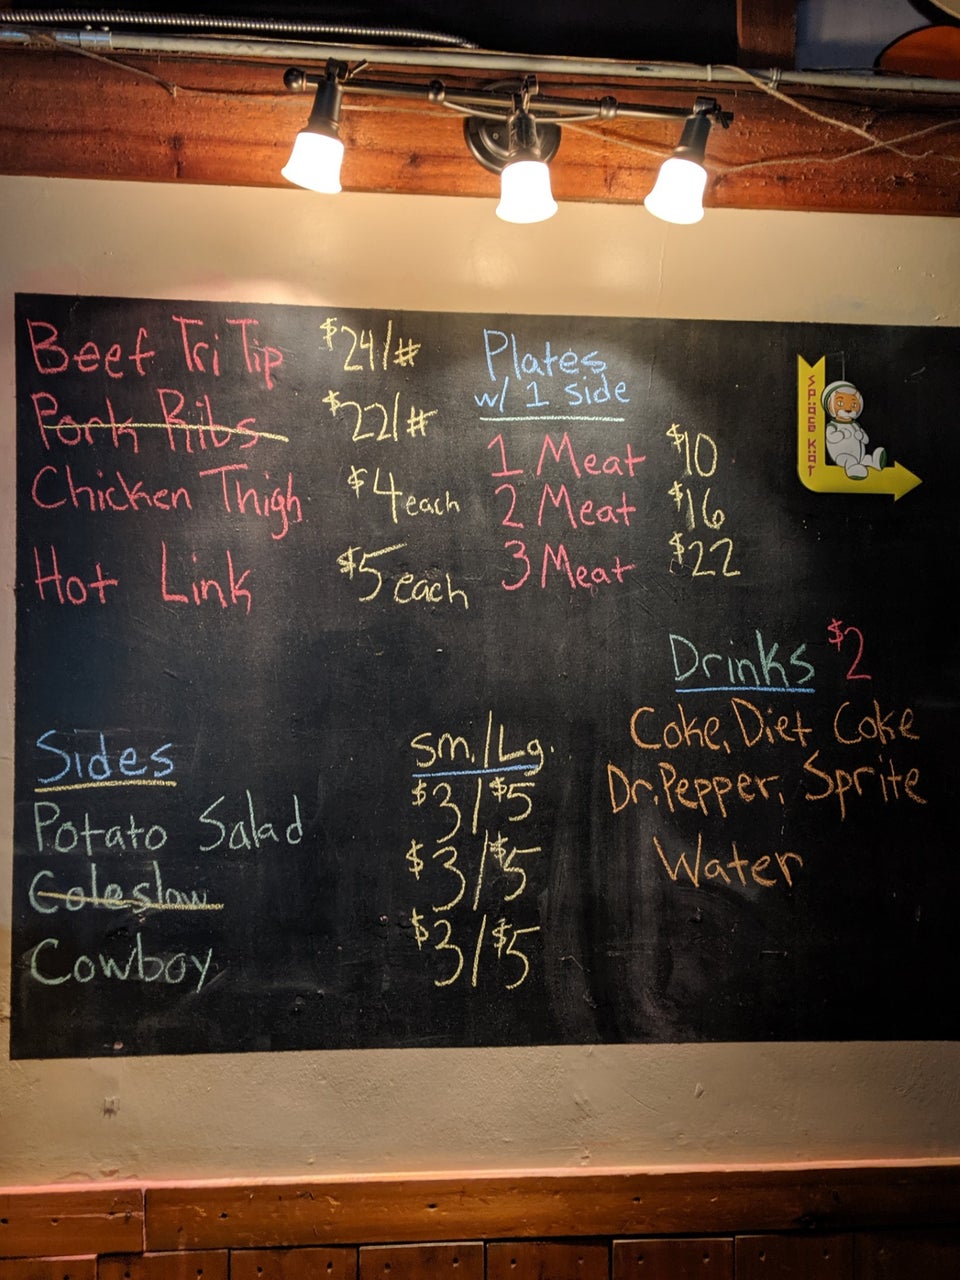 Beef Tri Tip $24/#
Pork Ribs $22/#
Chicken Thigh $4 each
Hot Link $5 each
Plates
w/ 1 side
1 Meat $10
2 Meat $16
3 Meat $22
SPACE KAT
Drinks $2
Coke, Diet Coke
Dr. Pepper, Sprite
Water
Sides sm./Lg.
Potato Salad $3/$5
Coleslaw $3/$5
Cowboy $3/$5